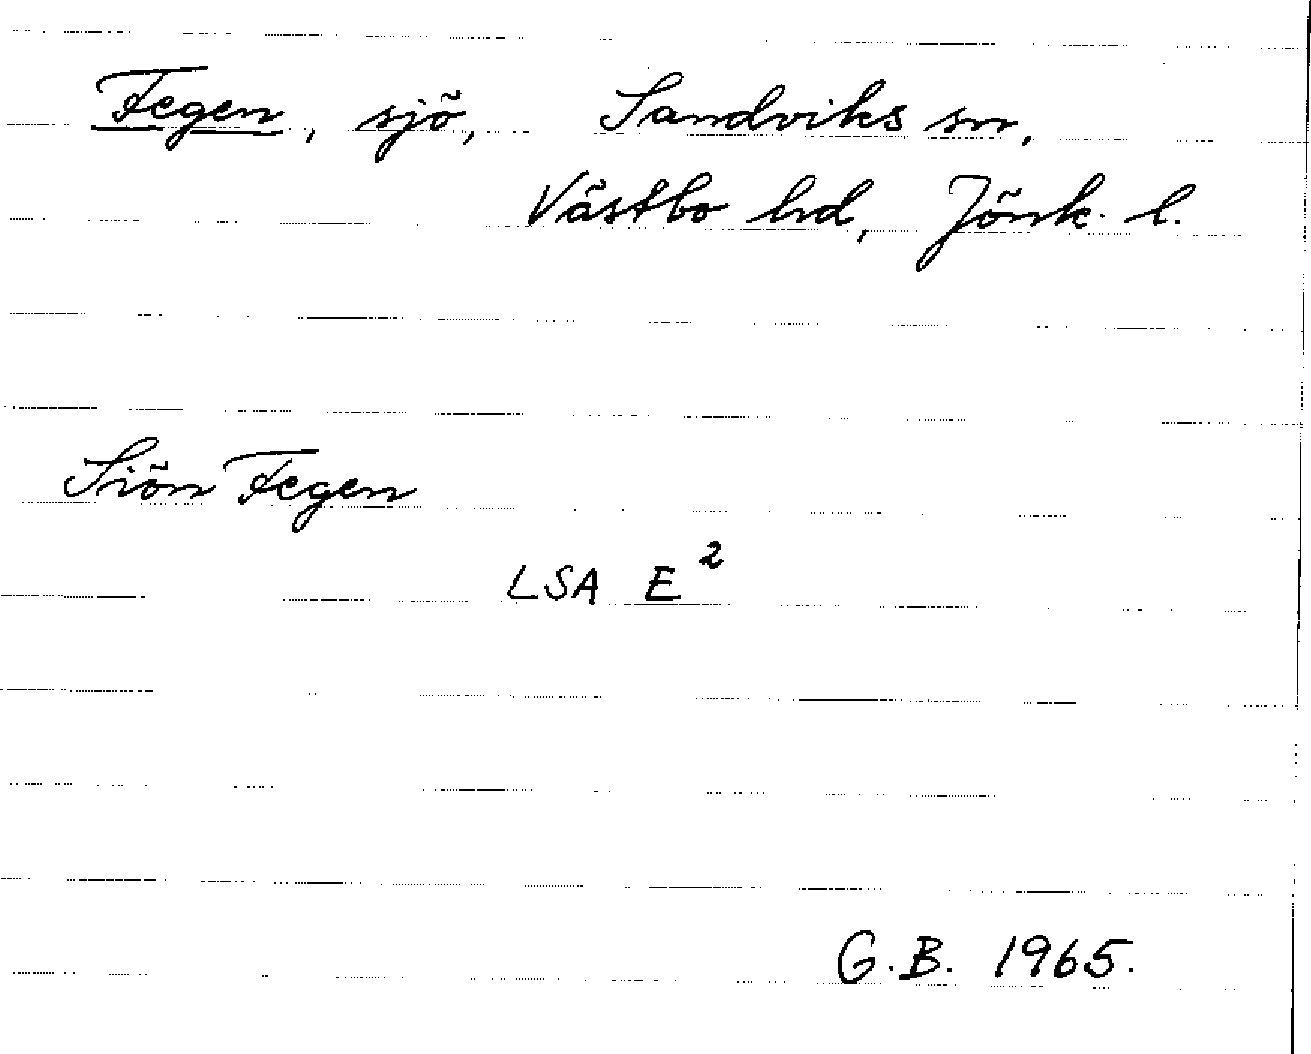 Fegen, sjö, Sandviks sn,
Västbo hd, Jönk. l.
Siön Fegen
LSA E²
G.B. 1965.